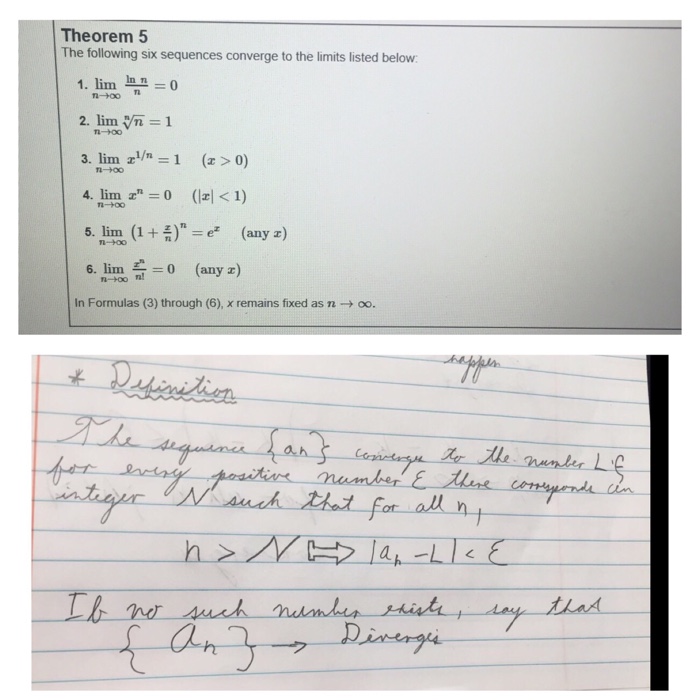 Theorem 5
The following six sequences converge to the limits listed below:
1. lim n→∞ ln n / n = 0
2. lim n→∞ ⁿ√n = 1
3. lim n→∞ x^{1/n} = 1 (x > 0)
4. lim n→∞ xⁿ = 0 (|x| < 1)
5. lim n→∞ (1 + x/n)ⁿ = eˣ (any x)
6. lim n→∞ xⁿ/n! = 0 (any x)
In Formulas (3) through (6), x remains fixed as n → ∞.
happen
* Definition
The sequence {an} converge to the number L if
for every positive number ε there corresponds an
integer N such that for all n,
n > N ⟺ |an - L| < ε
If no such number exists, say that
{an} → Diverges